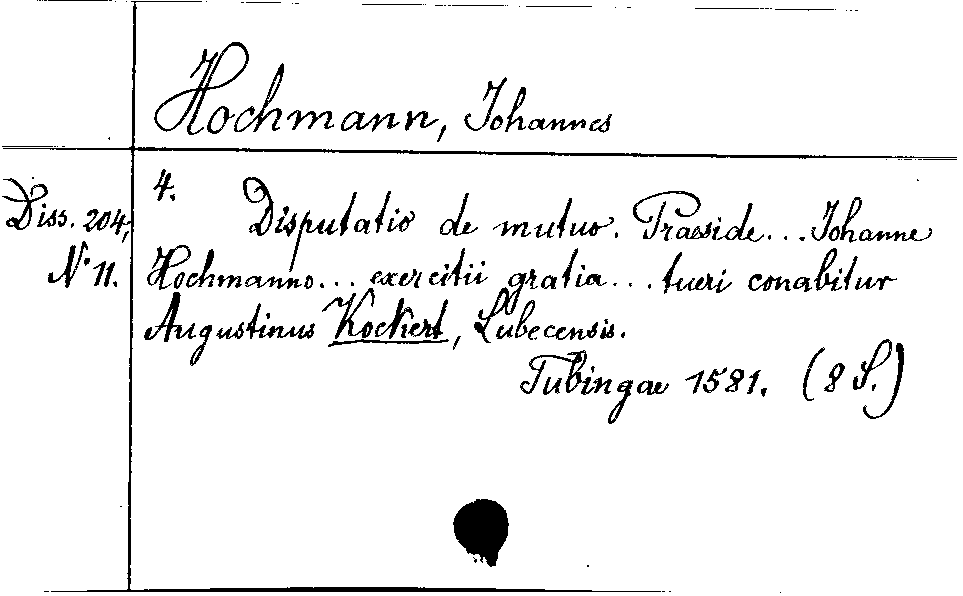 Hochmann, Johannes
Diss. 204,
N° 11.
4.
Disputatio de mutuo. Praeside... Johanne
Hochmanno... exercitii gratia... tueri conabitur
Augustinus Kockert, Lubecensis.
Tubingae 1581. (8 S.)